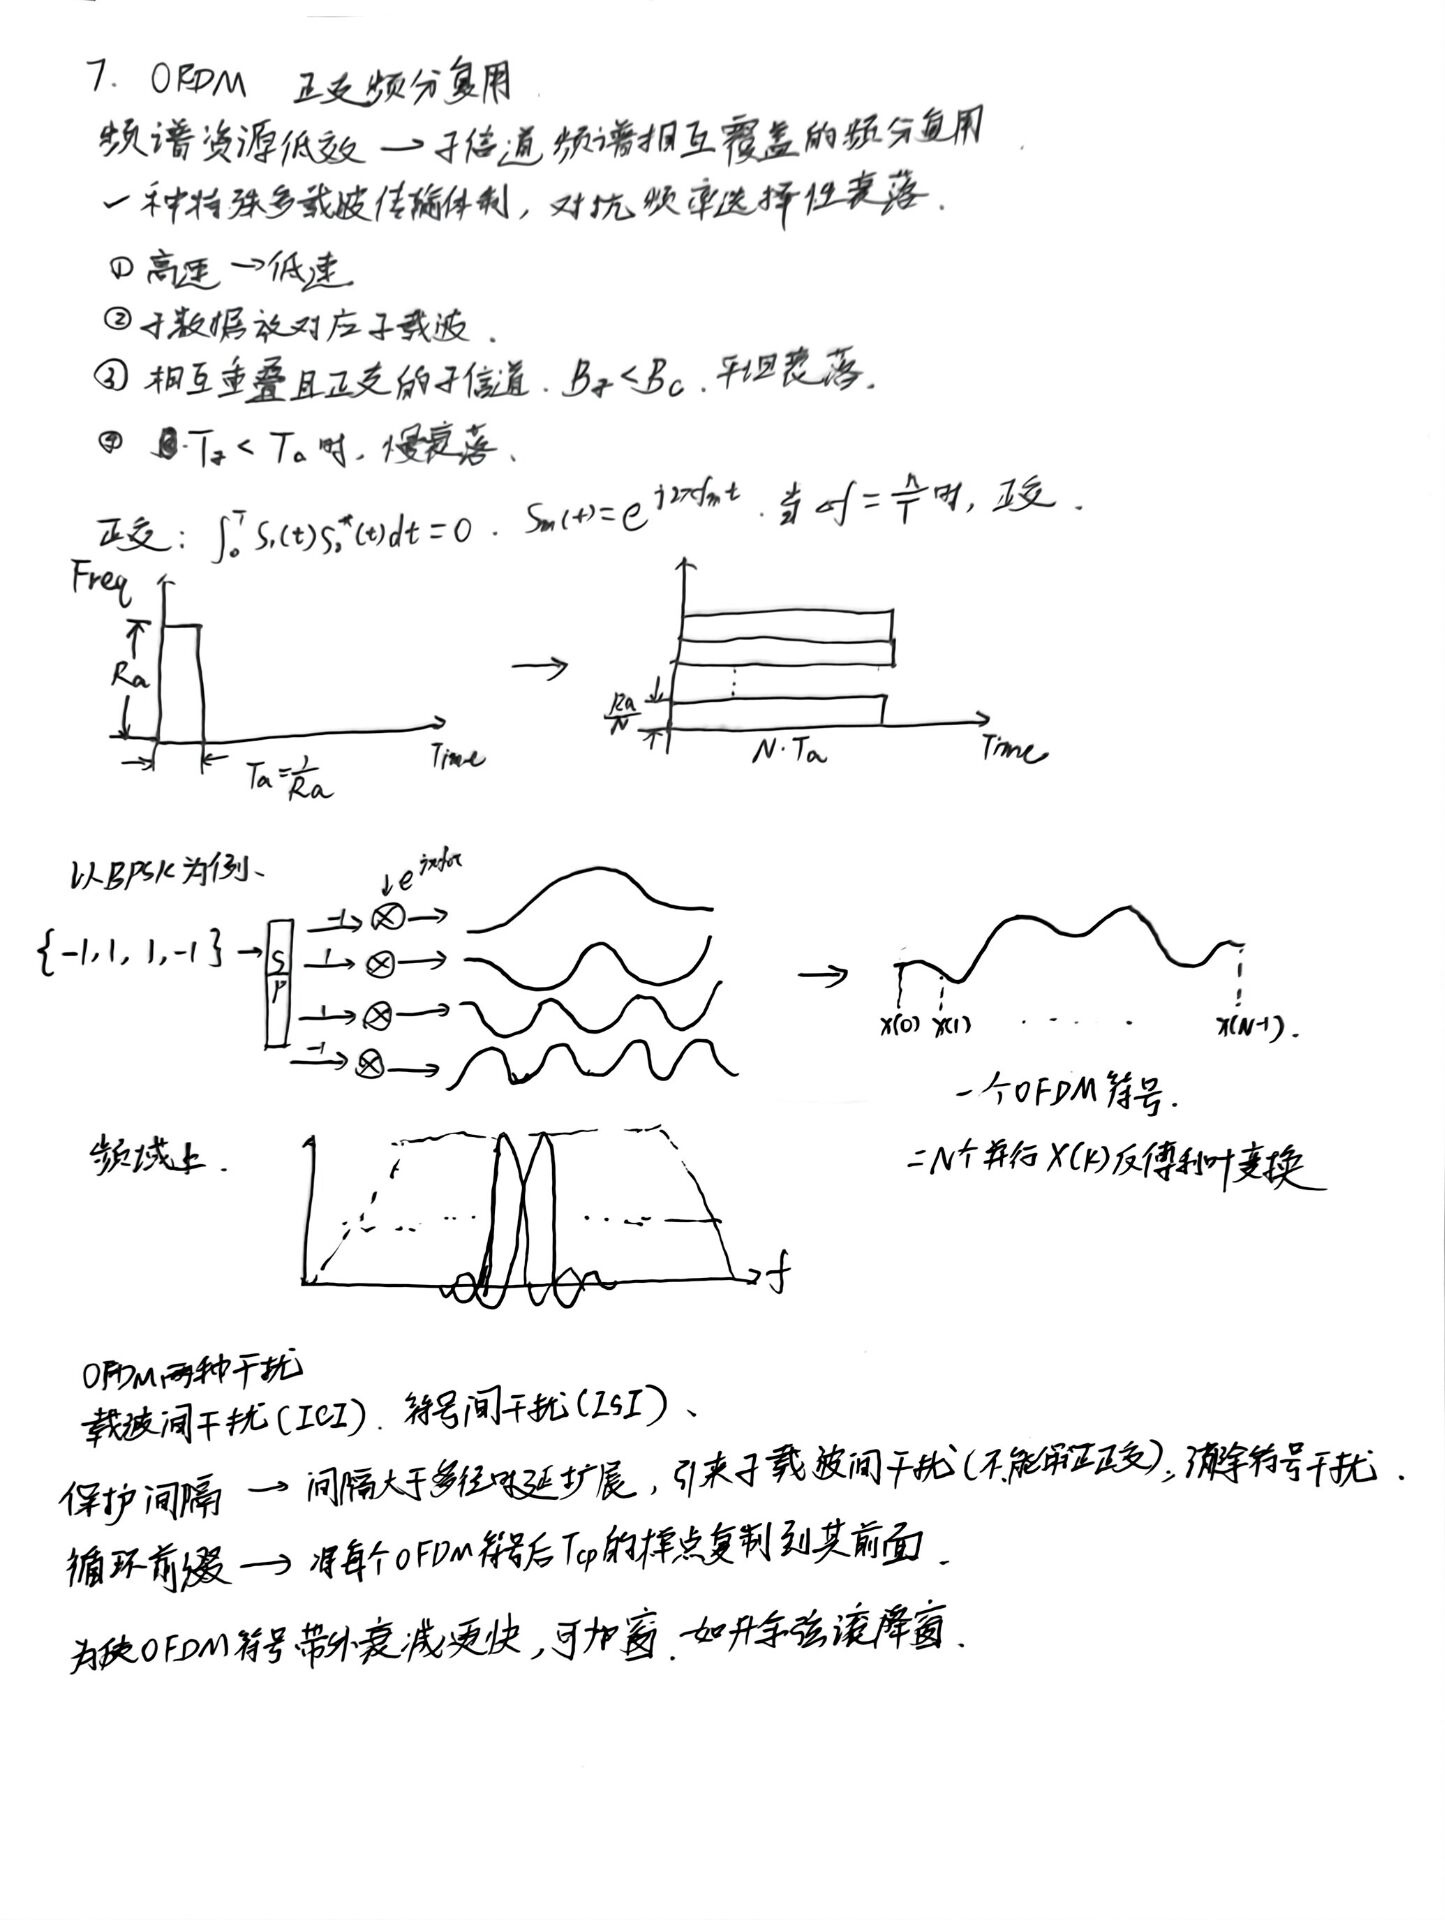 7. OFDM 正交频分复用
频谱资源低效 → 子信道频谱相互覆盖的频分复用.
一种特殊多载波传输体制, 对抗频率选择性衰落.
① 高速 → 低速.
② 子数据放对应子载波.
③ 相互重叠且正交的子信道. B子 < Bc. 平坦衰落.
④ T子 < Ta 时, 慢衰落.
正交: ∫₀ᵀ S₁(t)S₂*(t)dt = 0. Sm(t) = e^{j2πfmt}. 当 Δf = n/T 时, 正交.
Freq
Ra
Time
Ta = 1/Ra
→
Ra/N
N·Ta
Time
以BPSK为例、
{-1, 1, 1, -1} → S/P
-1 → ⊗ →
1 → ⊗ →
1 → ⊗ →
-1 → ⊗ →
→
x(0) x(1) ..... x(N-1).
一个OFDM符号.
= N个并行X(k)反傅利叶变换
频域上.
f
OFDM两种干扰
载波间干扰(ICI). 符号间干扰(ISI)、
保护间隔 → 间隔大于多径时延扩展, 引来子载波间干扰(不能保证正交), 消除符号干扰.
循环前缀 → 将每个OFDM符号后Tcp的样点复制到其前面.
为使OFDM符号带外衰减更快, 可加窗. 如升余弦滚降窗.